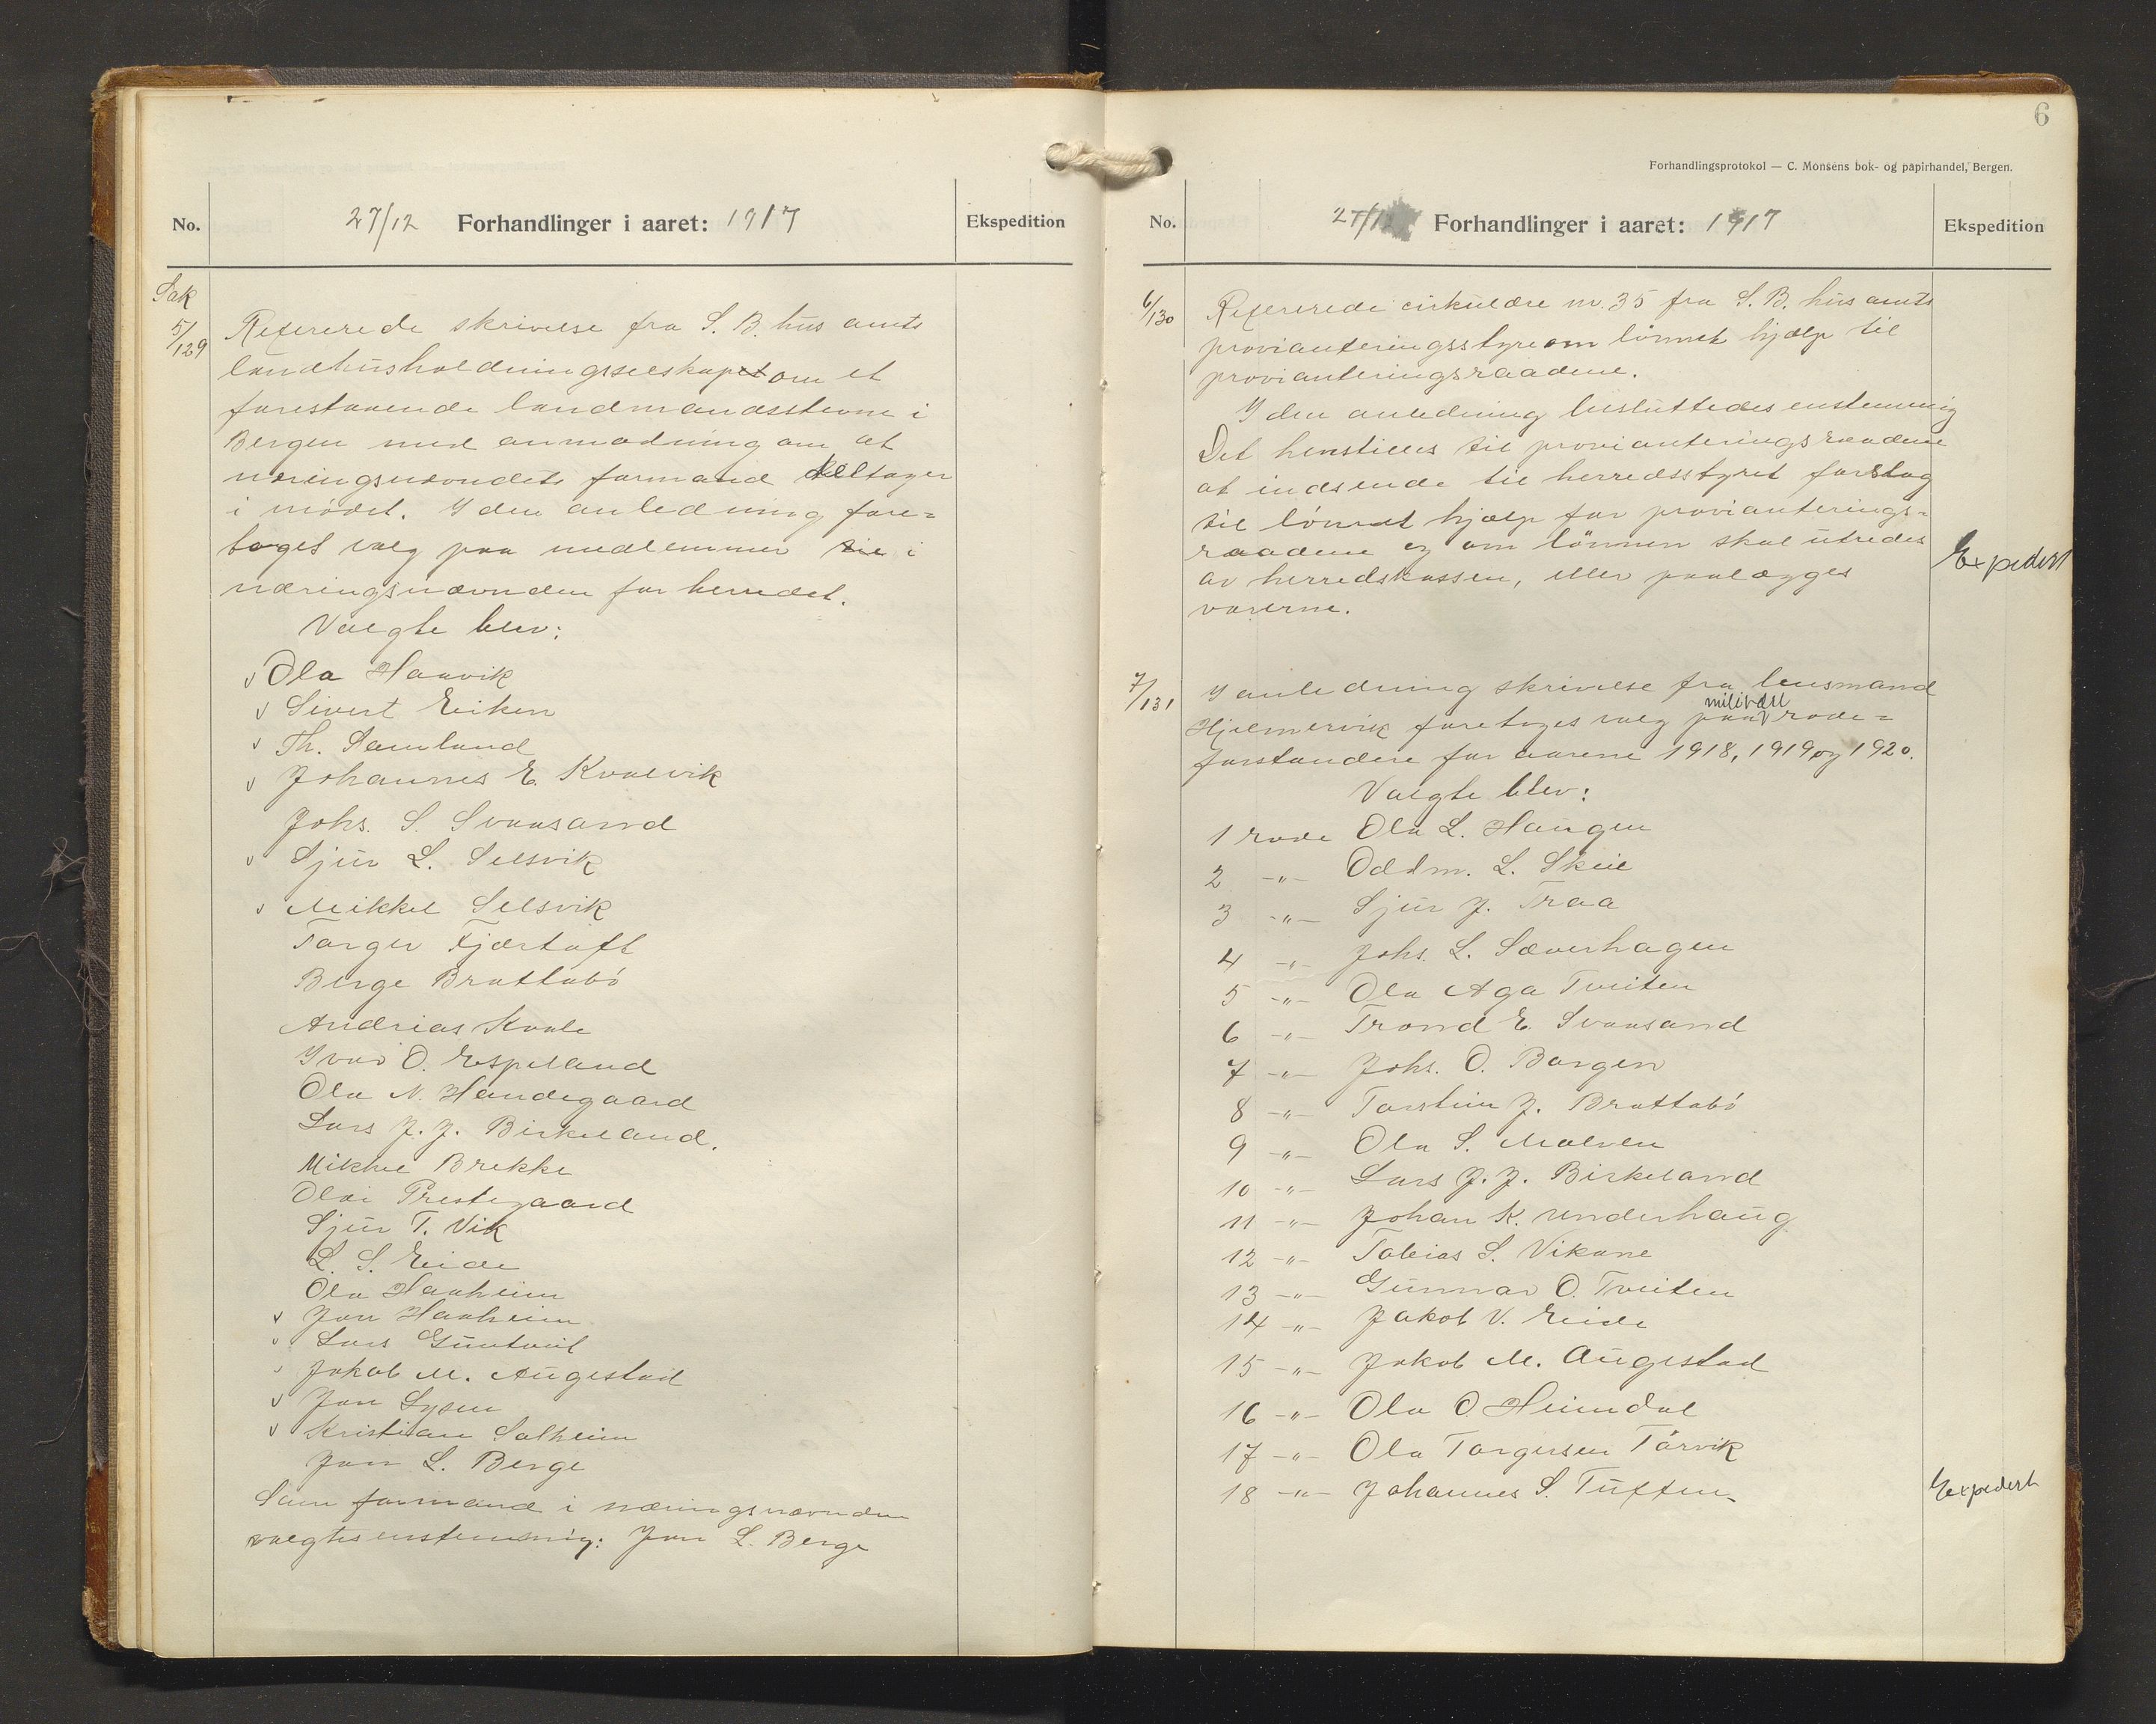 No.
27/12 Forhandlinger i aaret: 1917
Ekspedition
Sak
5/129
Refererede skrivelse fra S. B. hus amts
landhusholdningsselskapet om et
forestaaende landmandsstevne i
Bergen med anmodning om at
næringsnævndets formand deltager
i mødet. I den anledning fore=
toges valg paa medlemmer til i
næringsnævnden for herredet.
Valgte blev:
v Ola Haavik
v Sivert Eiken
v Th. Samland
v Johannes E. Kvalvik
Johs. S. Svaasand
v Sjur L. Selsvik
v Mikkel Selsvik
Torger Fjærtoft
Berge Brattabö
Andreas Kvale
Ivar O. Espeland
Ola N. Handegaard
Lars J. J. Birkeland.
Mikkel Brekke
Olai Prestegaard
Sjur T. Vik
L. S. Eide
Ola Haaheim
v Jon Haaheim
v Lars Guntveit
v Jakob M. Augestad
v Jon Lysen
v Kristian Solheim
Jon L. Berge
Som formand i næringsnævnden
valgtes enstemmig: Jon L. Berge
6
Forhandlingsprotokol — C. Monsens bok- og papirhandel, Bergen.
No.
27/12 Forhandlinger i aaret: 1917
Ekspedition
6/130
Refererede cirkulære nr. 35 fra S. B. hus amts
provianteringsstyre om lönnet hjælp til
provianteringsraadene.
I den anledning besluttedes enstemmig
Det henstilles til provianteringsraadene
at indsende til herredsstyret forslag
til lönnet hjælp for provianterings=
raadene og om lönnen skal utredes
av herredskassen, eller paalægges
varerne.
Expedert
7/131
I anledning skrivelse fra lensmand
Hjelmervik foretoges valg paa militære rode=
forstandere for aarene 1918, 1919 og 1920.
Valgte blev:
1 rode Ola L. Haugen
2 -"- Oddm. L. Skeie
3 -"- Sjur J. Traa
4 -"- Johs. L. Sæverhagen
5 -"- Ola Aga Tveiten
6 -"- Trond E. Svaasand
7 -"- Johs. O. Borgen
8 -"- Torstein J. Brattabö
9 -"- Ola S. Malven
10 -"- Lars J. J. Birkeland
11 -"- Johan K. Underhaug
12 -"- Tobias S. Vikane
13 -"- Gunnar O. Tveiten
14 -"- Jakob V. Eide
15 -"- Jakob M. Augestad
16 -"- Ola O. Heimdal
17 -"- Ola Torgersen Törvik
18 -"- Johannes S. Tuften
Expedert